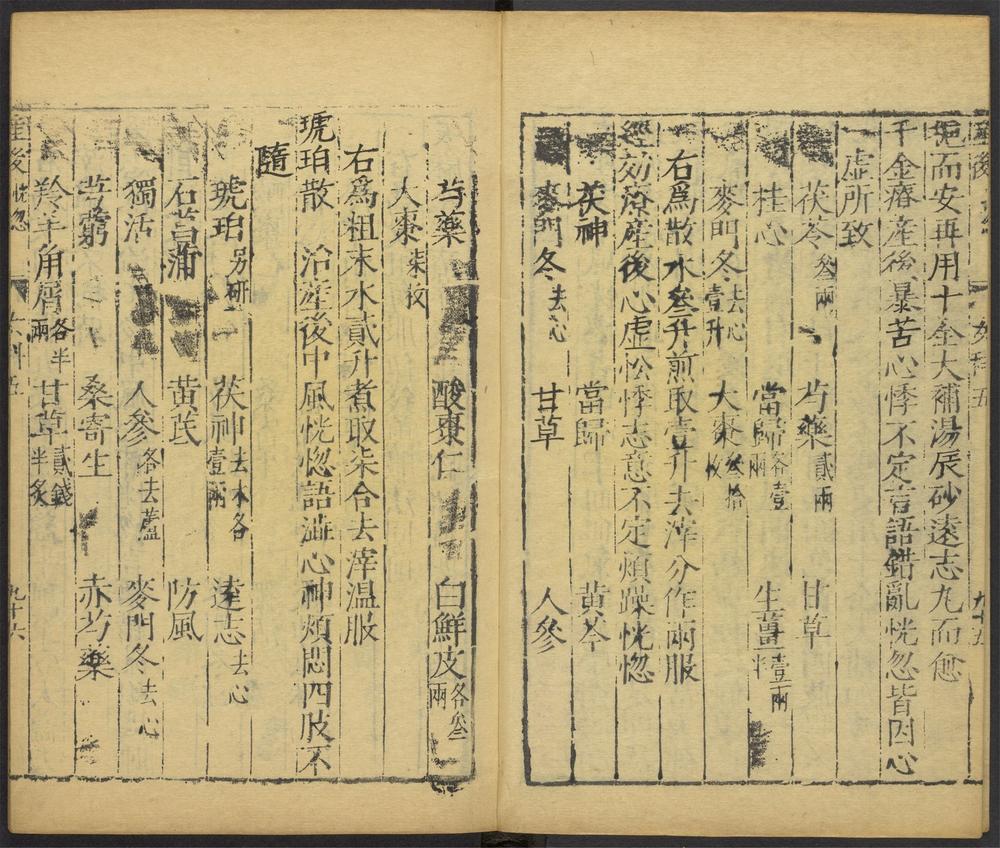 産後
女科五
九十五
㞃而安再用十全大補湯辰砂遠志丸而愈
千金療産後暴苦心悸不定言語錯亂恍忽皆因心
虚所致
茯苓叁兩 芍藥貳兩 甘草
桂心 當歸各壹兩 生薑壹兩
麥門冬去心壹升 大棗叁拾枚
右爲散水叁升煎取壹升去滓分作兩服
經効療産後心虚忪悸志意不定煩躁恍惚
茯神 當歸 黄芩
麥門冬去心 甘草 人參
芍藥 酸棗仁 白鮮皮各叁兩
大棗柒枚
右爲粗末水貳升煮取柒合去滓温服
琥珀散 治産後中風恍惚語澁心神煩悶四肢不
隨
琥珀另研 茯神去木各壹兩 遠志去心
石菖蒲 黄芪 防風
獨活 人參各去蘆 麥門冬去心
芎藭 桑寄生 赤芍藥
羚羊角屑各半兩 甘草貳錢半炙
産後恍忽
女科五
九十六